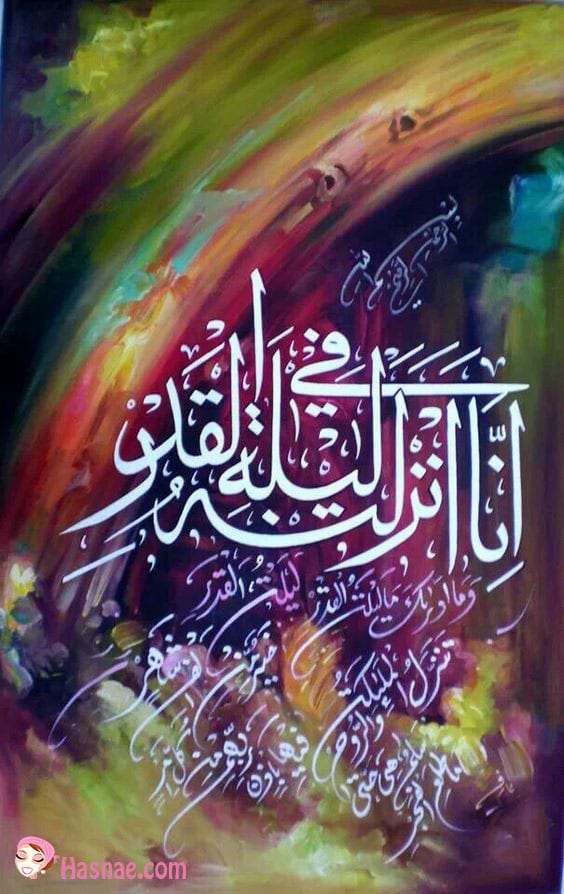 بسم الله الرحمن الرحيم
إنا انزلنه في ليلة القدر
وما ادريك ما ليلة القدر ليلة القدر
خير من الف شهر
تنزل الملئكة والروح
فيها باذن ربهم من كل امر
سلم هي حتى
مطلع الفجر
Hasnae.com